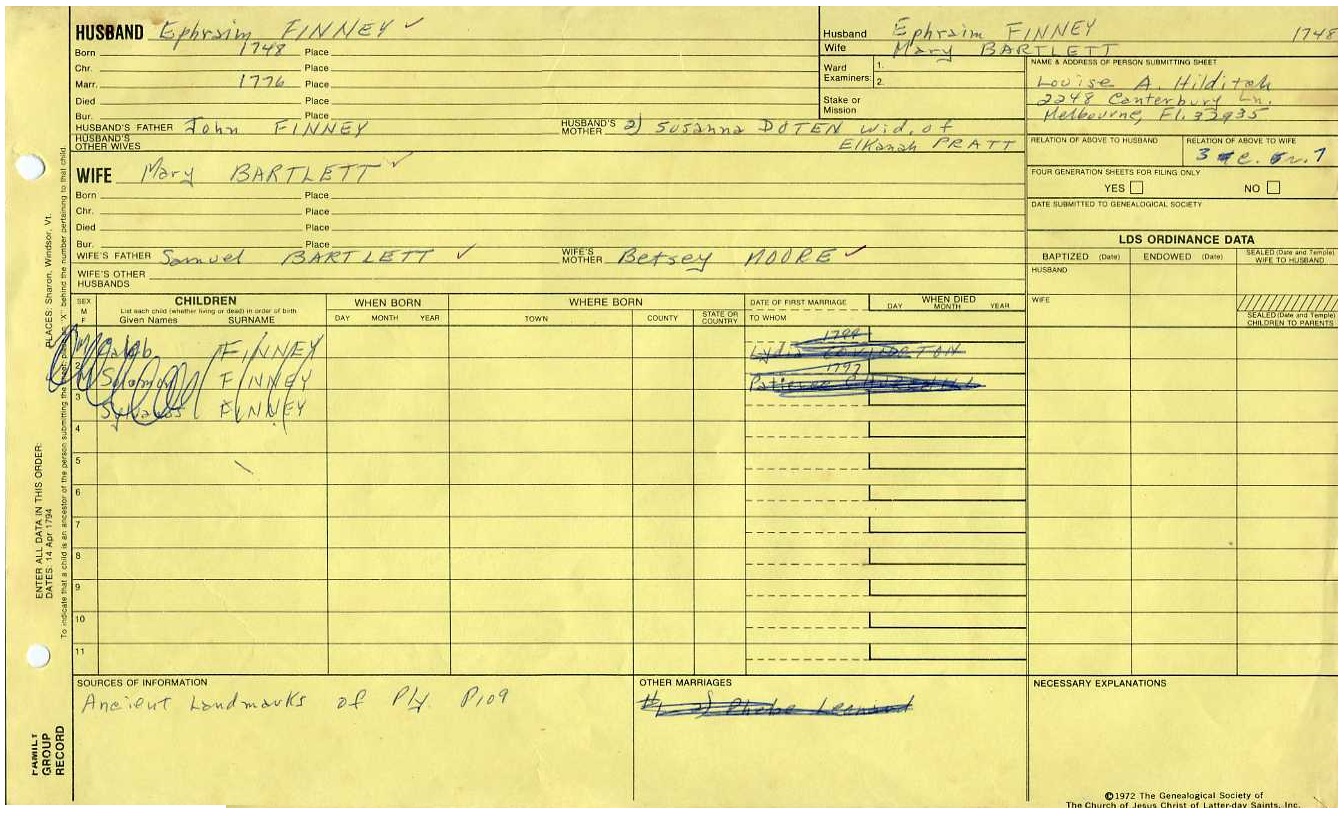 HUSBAND Ephraim FINNEY ✓
Born 1748 Place
Chr. Place
Marr. 1776 Place
Died Place
Bur. Place
HUSBAND'S FATHER John FINNEY HUSBAND'S MOTHER 2) Susanna DOTEN wid. of
HUSBAND'S OTHER WIVES ElKanah PRATT
Husband Ephraim FINNEY 1748
Wife Mary BARTLETT
Ward Examiners: 1.
2.
Stake or Mission
NAME & ADDRESS OF PERSON SUBMITTING SHEET
Louise A. Hilditch
2248 Canterbury Ln.
Melbourne, Fl. 32935
RELATION OF ABOVE TO HUSBAND RELATION OF ABOVE TO WIFE
3 c. r. 7
FOUR GENERATION SHEETS FOR FILING ONLY
YES NO
DATE SUBMITTED TO GENEALOGICAL SOCIETY
WIFE Mary BARTLETT ✓
Born Place
Chr. Place
Died Place
Bur. Place
WIFE'S FATHER Samuel BARTLETT ✓ WIFE'S MOTHER Betsey MOORE ✓
WIFE'S OTHER HUSBANDS
LDS ORDINANCE DATA
BAPTIZED (Date) ENDOWED (Date) SEALED (Date and Temple) WIFE TO HUSBAND
HUSBAND
WIFE
SEALED (Date and Temple) CHILDREN TO PARENTS
SEX M F
CHILDREN
List each child (whether living or dead) in order of birth
Given Names SURNAME
WHEN BORN
DAY MONTH YEAR
WHERE BORN
TOWN COUNTY STATE OR COUNTRY
DATE OF FIRST MARRIAGE
TO WHOM
WHEN DIED
DAY MONTH YEAR
Caleb FINNEY 1799
Lydia COVINGTON
2 Solomon FINNEY 1797
Patience
3 Sylvanus FINNEY
4
5
6
7
8
9
10
11
SOURCES OF INFORMATION
Ancient Landmarks of Ply. P109
OTHER MARRIAGES
#1 2) Phebe Leonard
NECESSARY EXPLANATIONS
©1972 The Genealogical Society of
The Church of Jesus Christ of Latter-day Saints, Inc.
PLACES: Sharon, Windsor, Vt.
ENTER ALL DATA IN THIS ORDER:
DATES: 14 Apr 1794
To indicate that a child is an ancestor of the person submitting the "X" behind the number pertaining to that child.
FAMILY GROUP RECORD